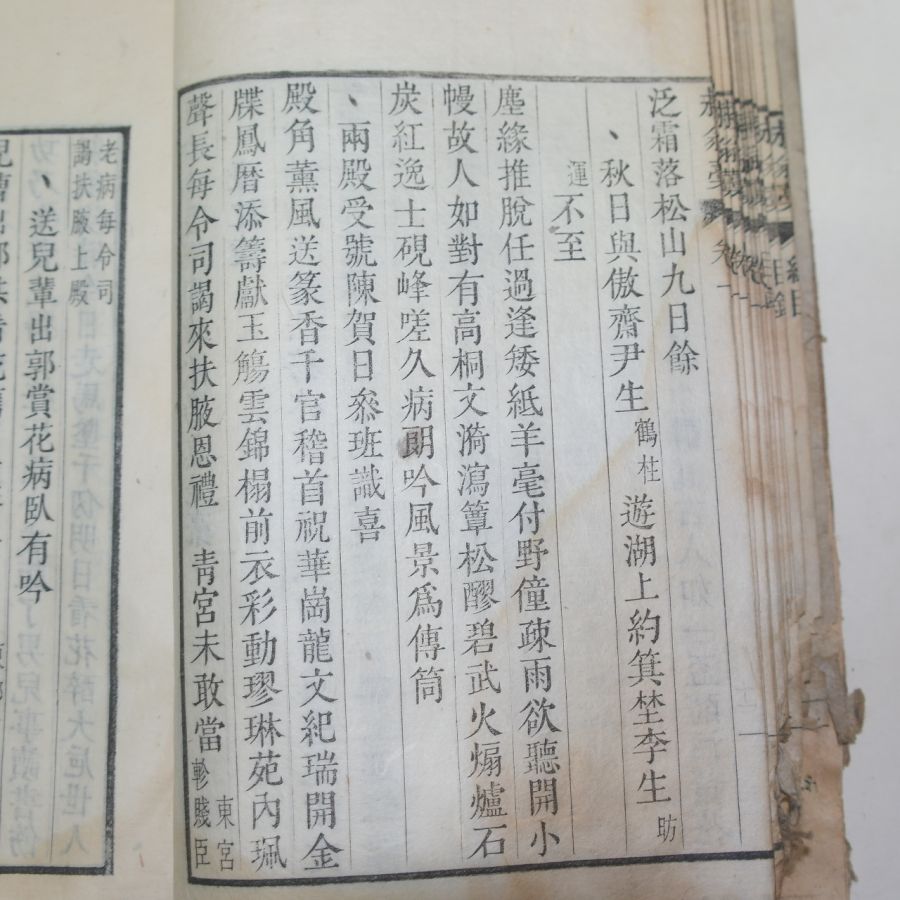 泛霜落松山九日餘
、秋日與傲齋尹生鶴柱遊湖上約箕埜李生昉
運不至
塵緣推脫任過逢矮紙羊毫付野僮疎雨欲聽開小
幔故人如對有高桐文漪瀉簟松醪碧武火煽爐石
炭紅逸士硯峰嗟久病朗吟風景爲傳筒
、兩殿受號陳賀日叅班識喜
殿角薰風送篆香千官稽首祝華崗龍文紀瑞開金
牒鳳曆添籌獻玉觴雲錦榻前衣彩動璆琳苑內珮
聲長每令司謁來扶腋恩禮 靑宮未敢當東宮軫賤臣
老病每令司謁扶腋上殿
、送兒輩出郭賞花病臥有吟